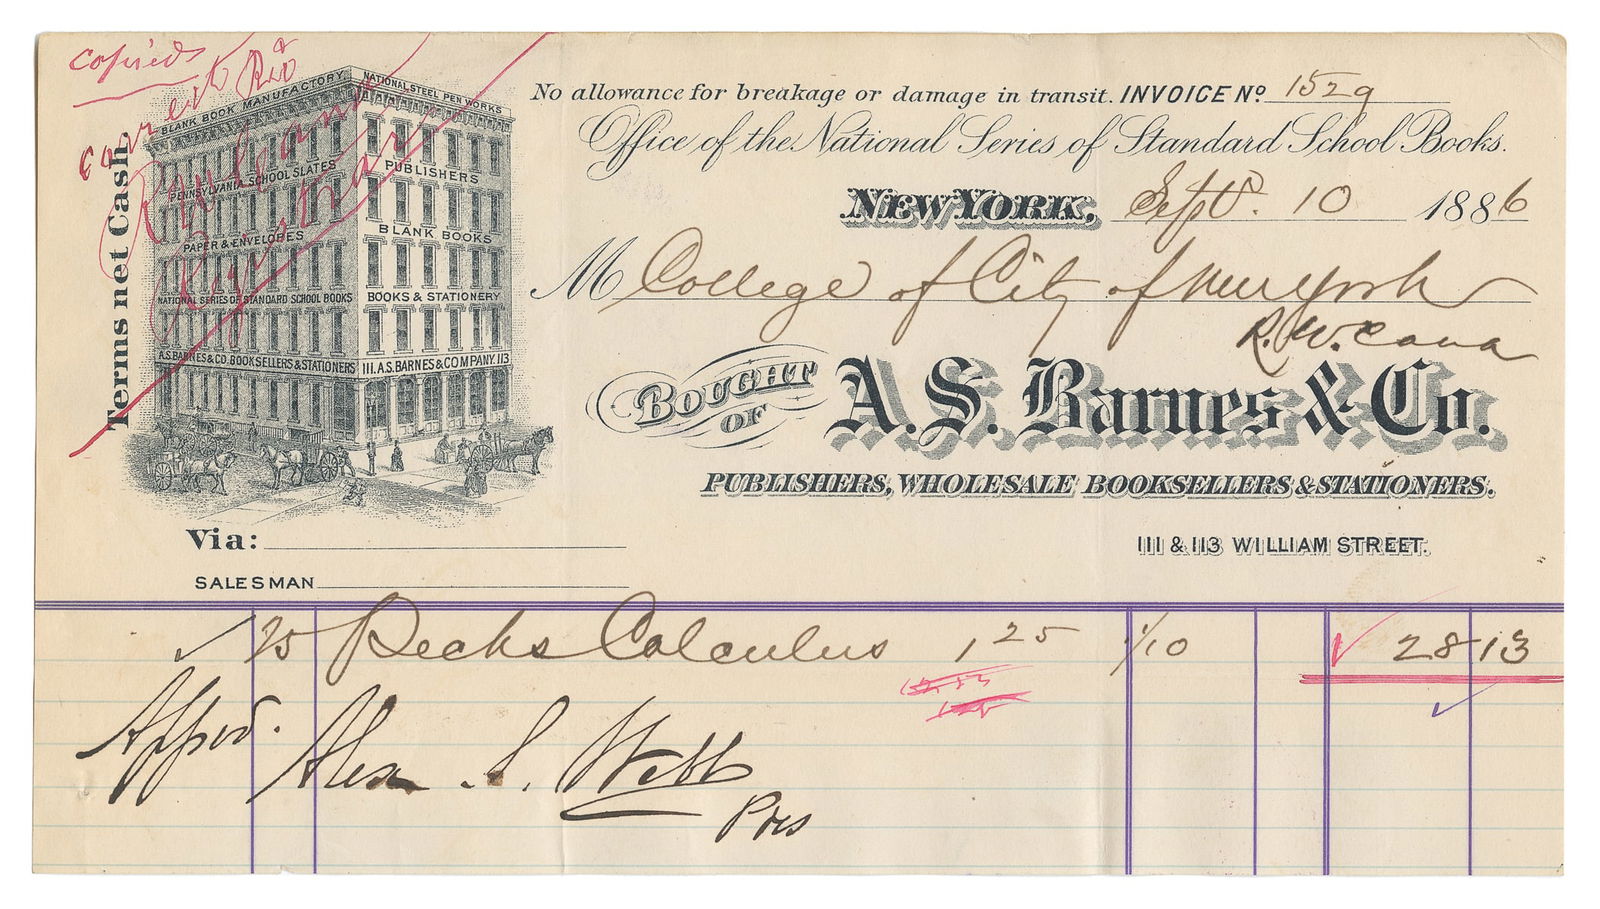 copied
correct Rec'd
Registrar
Terms net Cash.
BLANK BOOK MANUFACTORY.
NATIONAL STEEL PEN WORKS
PENNSYLVANIA SCHOOL SLATES
PUBLISHERS
PAPER & ENVELOPES
BLANK BOOKS
NATIONAL SERIES OF STANDARD SCHOOL BOOKS
BOOKS & STATIONERY
A.S. BARNES & CO. BOOKSELLERS & STATIONERS
111. A.S. BARNES & COMPANY. 113
No allowance for breakage or damage in transit. INVOICE No. 1529
Office of the National Series of Standard School Books.
NEW YORK, Sept. 10 1886
M College of City of New York
R. W.
BOUGHT OF A.S. Barnes & Co.
PUBLISHERS, WHOLESALE BOOKSELLERS & STATIONERS.
111 & 113 WILLIAM STREET.
Via:
SALESMAN
✓ 25 Pecks Calculus 1 25 1/10 ✓ 28 13
✓
Appvd. Alex. S. Webb
Pres